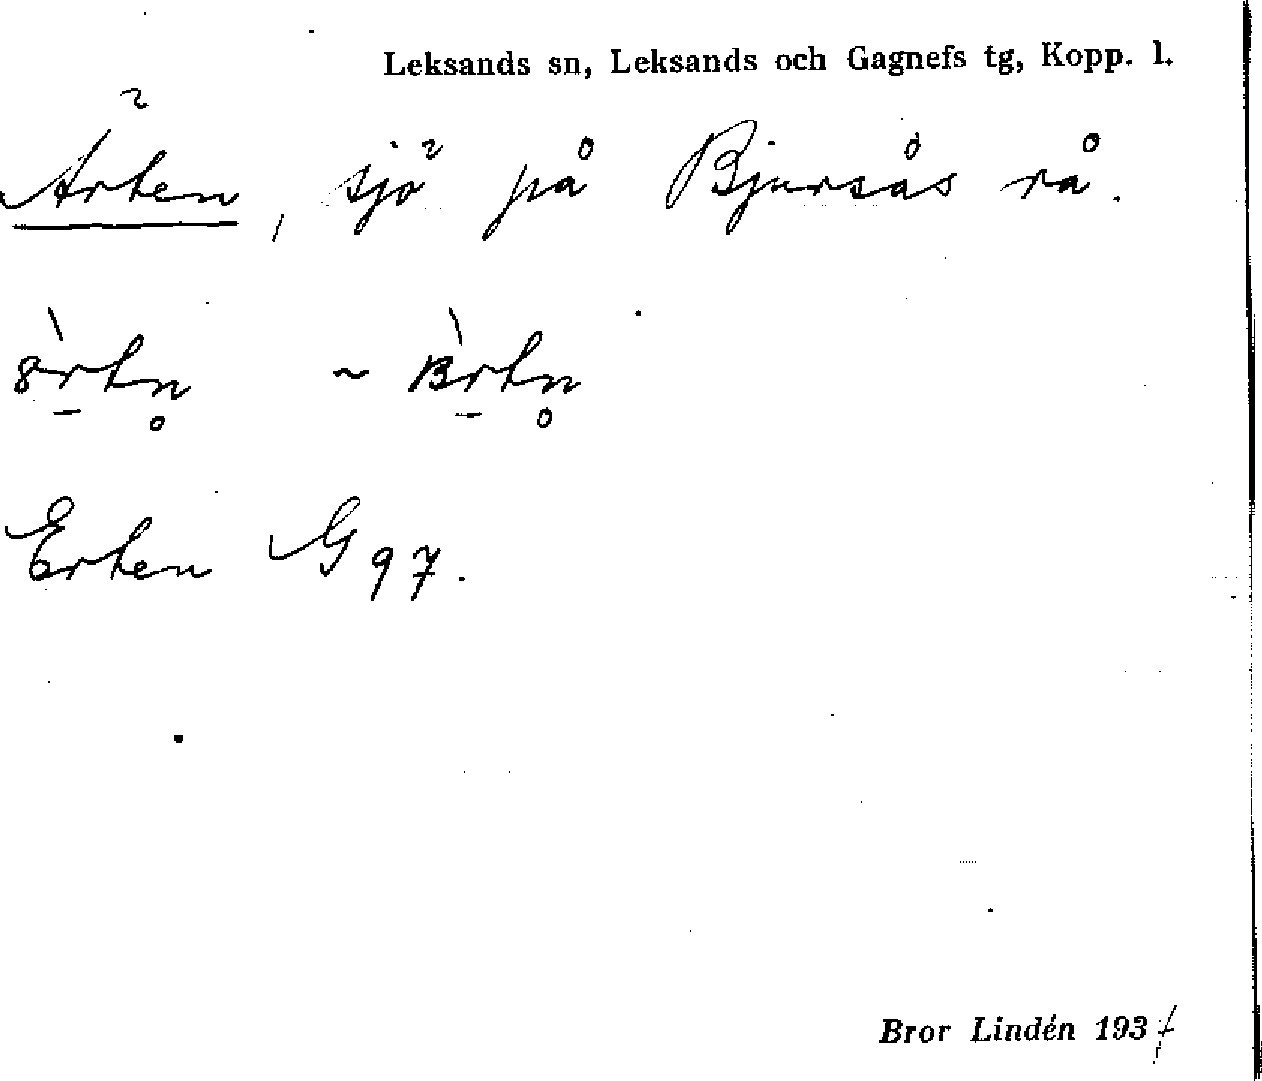 Leksands sn, Leksands och Gagnefs tg, Kopp. l.
Ärten, sjö på Bjursås rå.
~
Erten G 97.
Bror Lindén 193